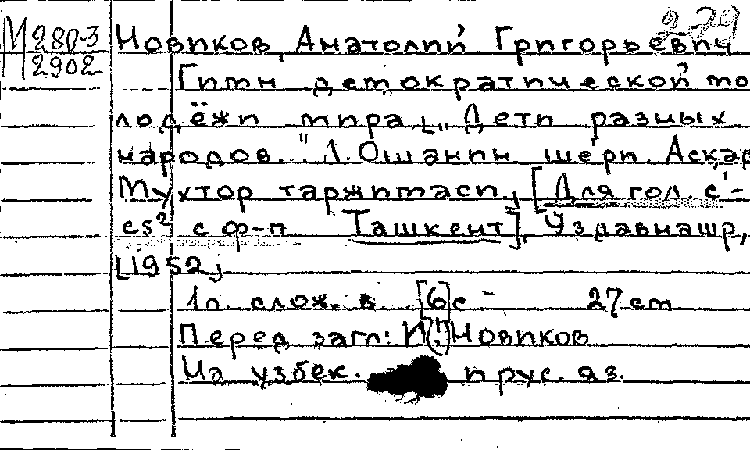 М 280-3
2902
279
Новиков, Анатолий Григорьевич
Гимн демократической мо
лодёжи мира. [„Дети разных
народов..." Л. Ошанин шеъри. Аскар
Мухтор таржимаси]. [Для гол. с¹-
es² с ф-п Ташкент], Уздавнашр,
[1952]
1 л. слож. в [6] с 27 см
Перед загл: И[!] Новиков
На узбек. и рус. яз.